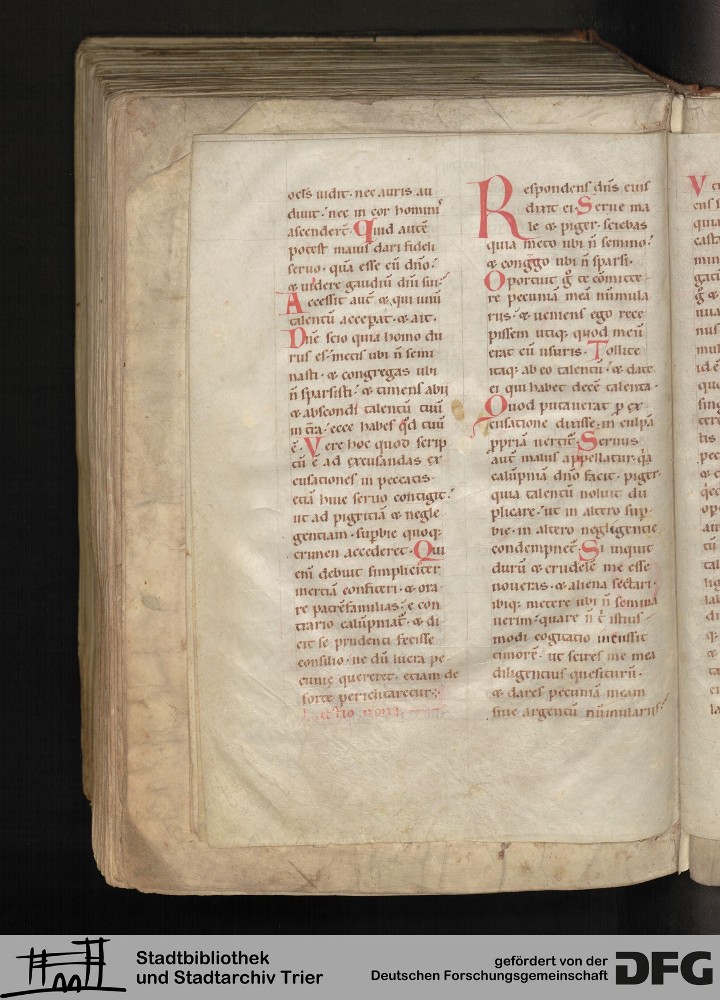 ocl's uidit. nec auris au
diuit. nec in cor homini'
ascenderẽt. Quid autẽ
potest maius dari fideli
seruo. quã esse cũ dño.
& uidere gaudiũ dñi sui.
Accessit aut̃ & qui unũ
talentũ acceperat. & ait.
Dñe scio quia homo du
rus es. metis ubi ñ semi
nasti. & congregas ubi
ñ sparsisti. & timens abii
& abscondi talentũ tuũ
in t̃ra. ecce habes qd̃ tuũ
ẽ. Vere hoc quod scrip
tũ ẽ ad excusandas ex
cusationes in peccatis.
etiã huic seruo contigit.
ut ad pigritiã & negle
gentiam. supbie quoq;
crimen accederet. Qui
eni debuit simpliciter
inertiã confiteri. & ora
re patrẽfamilias. e con
trario calũpniat̃. & di
cit se prudenti fecisse
consilio. ne dũ lucra pe
cunie quereret. etiam de
sorte periclitaretur.
lectio nona
Respondens dñs eius
dixit ei. Serue ma
le & piger. sciebas
quia meto ubi ñ semino.
& congrego ubi ñ sparsi.
Oportuit g̊ te cõmitte
re pecuniã meã nũmula
riis. & ueniens ego rece
pissem utiq; quod meũ
erat cũ usuris. Tollite
itaq; ab eo talentũ. & date
ei qui habet decẽ talenta.
Quod putauerat p ex
cusatione dixisse. in culpã
ppriã uertit̃. Seruus
aut̃ malus appellatur. q̃a
calũpniã dño facit. piger.
quia talentũ noluit du
plicare. ut in altero sup
bie. in altero negligentie
condempnet̃. Si inquit
durũ & crudelẽ me esse
noueras. & aliena sectari.
ibiq; metere ubi ñ semina
uerim. quare ñ t̃ istius
modi cogitatio incussit
timorẽ. ut scires me mea
diligentius quesiturũ.
& dares pecuniã meam
siue argentũ nũmulariis.
Stadtbibliothek
und Stadtarchiv Trier
gefördert von der
Deutschen Forschungsgemeinschaft
DFG